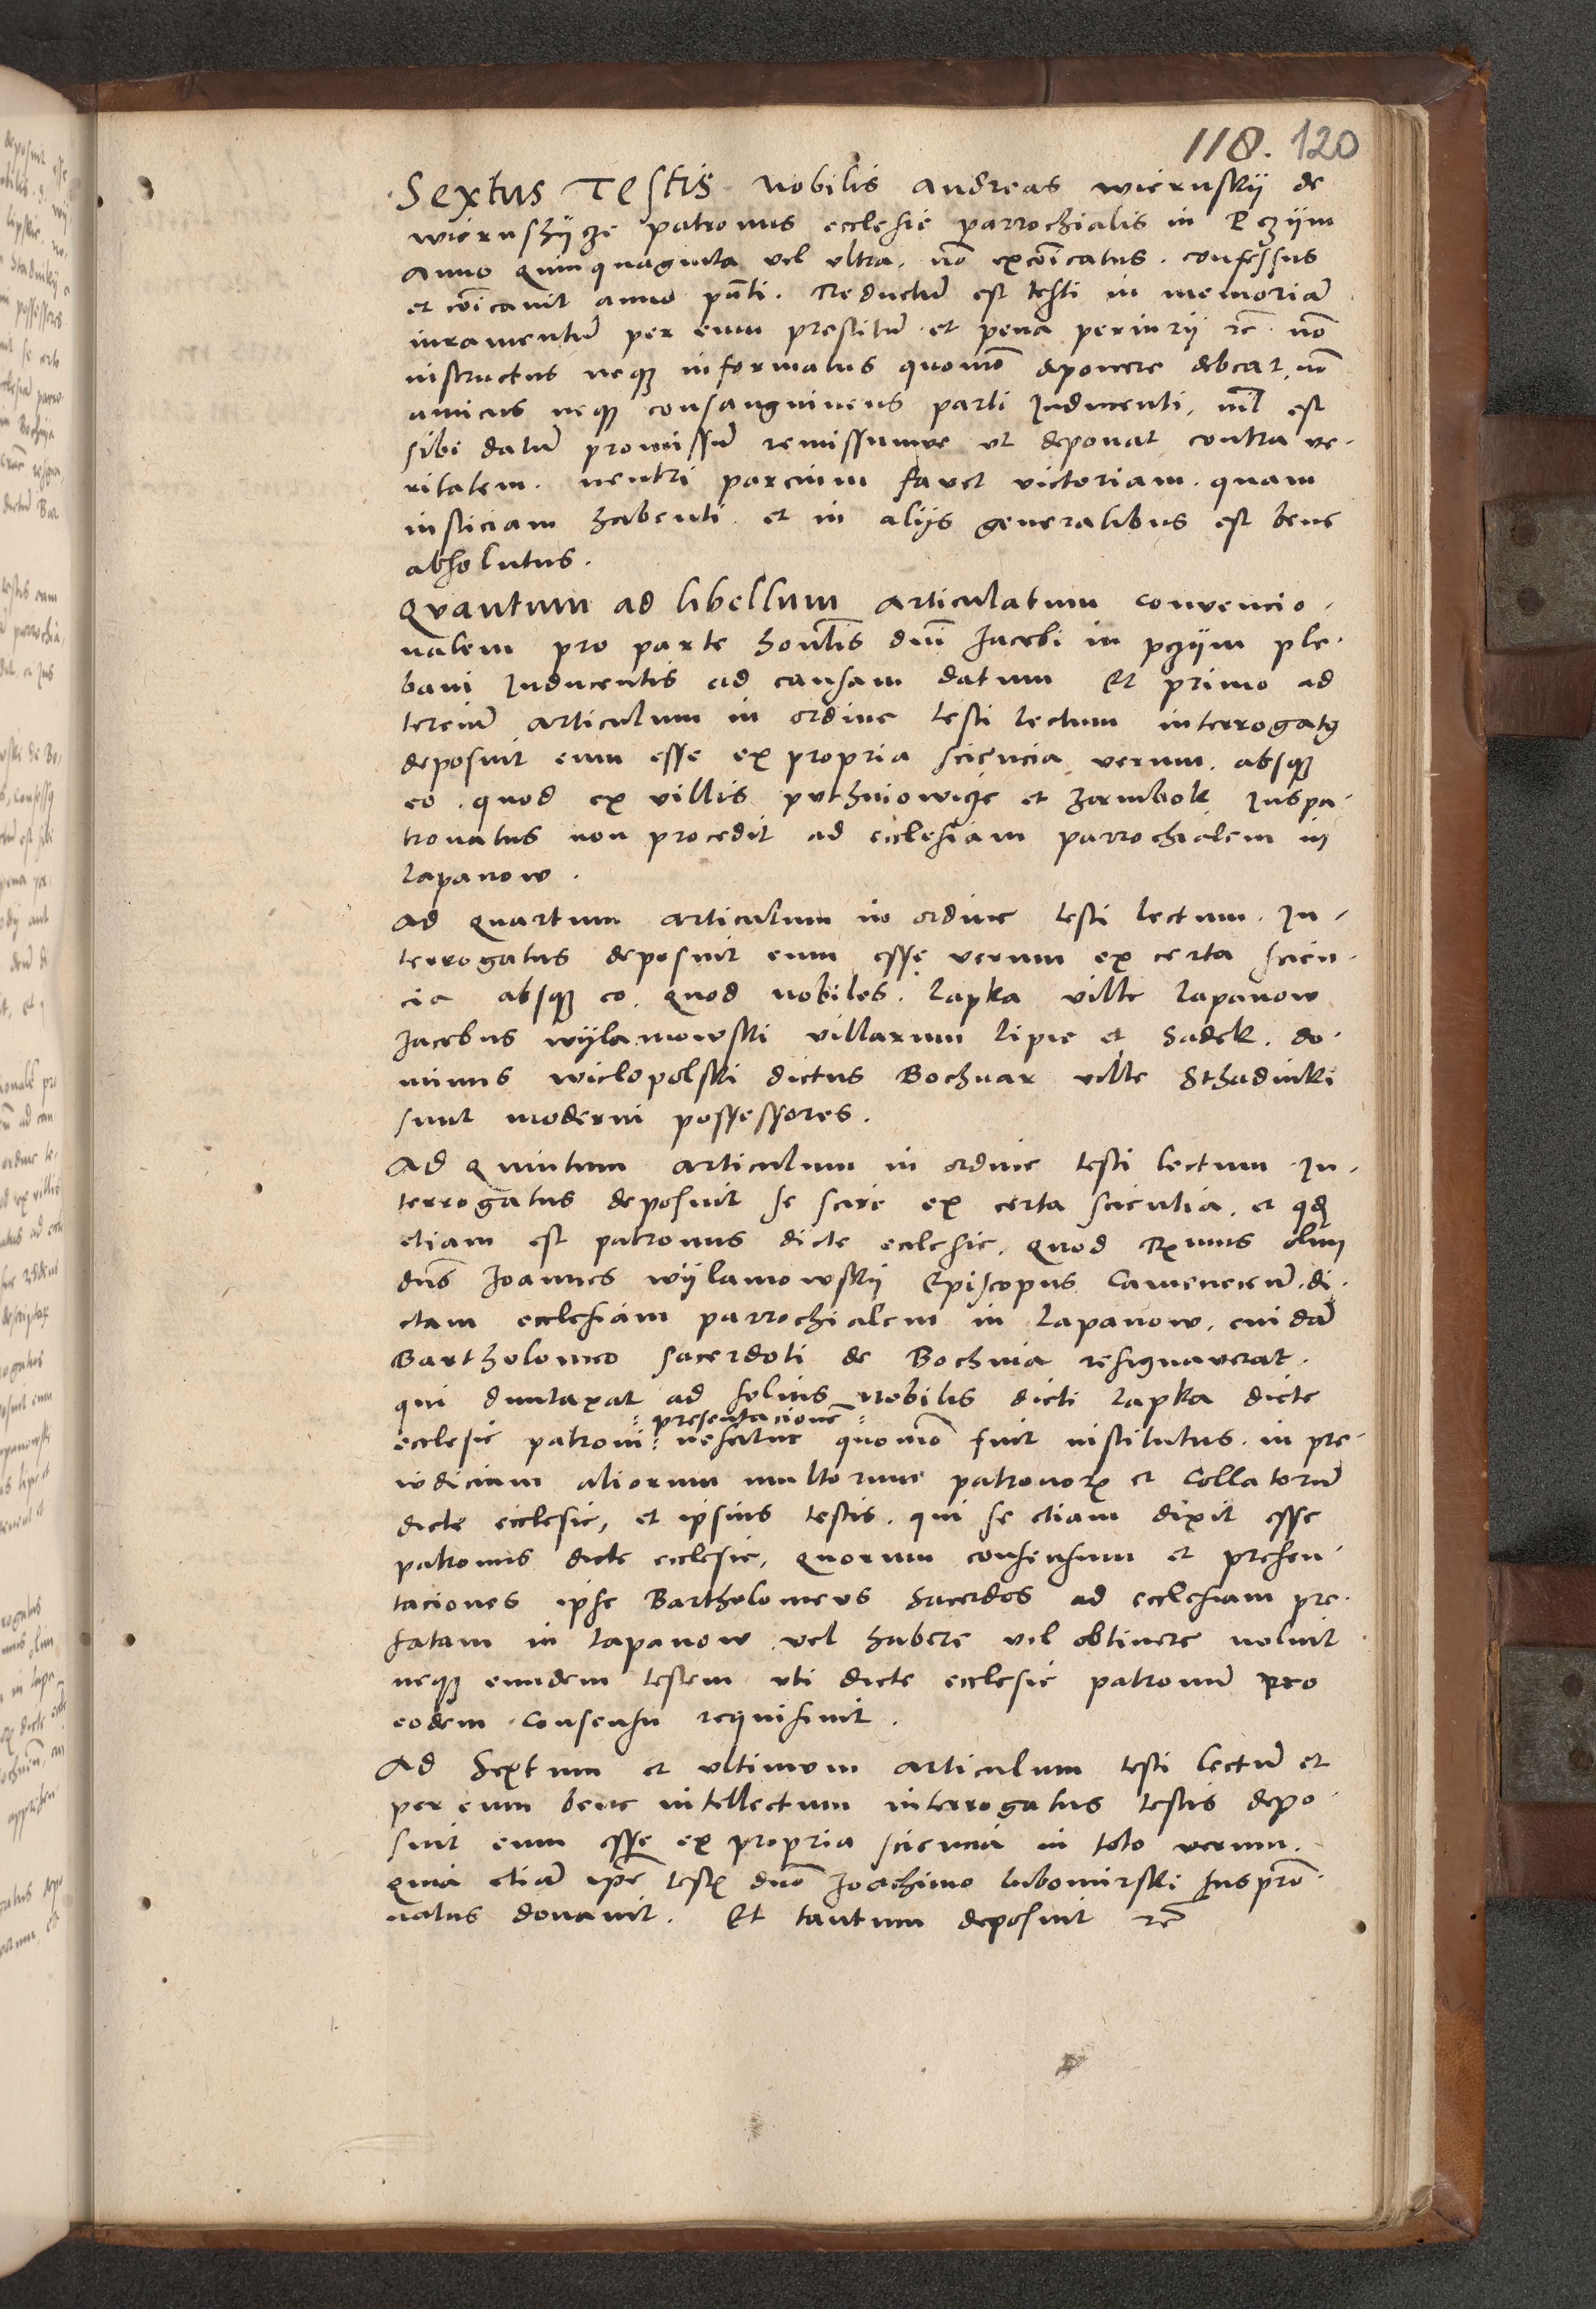 118. 120
Sextus Testis Nobilis Andreas wierusskij de
wierushÿcze patronus ecclesie parrochialis in Pczÿm
Anno quinquaginta vel vltra. nō excōicatus. confessus
et cōicavit anno pn̄ti. Reductū est testi in memoriā
iuramentū per eum prestitū et pena periurij rc̄. nō
instructus neqꝫ informatus quomō deponere debeat, nō
amicus neqꝫ consanguineus parti Inducenti, nil̄ est
sibi datū promissū remissumve vt deponat contra ve-
ritatem. neutri parcium favet victoriam. quam
iusticiam habenti. et in alijs generalibus est bene
absolutus.
Quantum ad libellum Articulatum convencio-
nalem pro parte honlis dn̄i Jacobi in pczÿm ple-
bani Inducentis ad causam datum Et primo ad
terciū articulum in ordine testi lectum interrogatꝰ
deposuit eum esse ex propria sciencia verum. absqꝫ
eo. quod ex villis puthniowicze et zarnbok Iuspa-
tronatus non procedit ad ecclesiam parrochialem in
Lapanow.
Ad quartum articulum in ordine testi lectum. In-
terrogatus deposuit eum esse verum ex certa scien-
cia absqꝫ eo. quod nobiles. Lapka ville Lapanow
Jacobus wÿlamowski villarum Lipie et Sadek. do-
minus wielopolski dictus Bochnar ville Sthadniki
sunt moderni possessores.
Ad quintum articulum in ordine testi lectum In-
terrogatus deposuit se scire ex certa scientia. et qd
etiam est patronus dicte ecclesie. quod Rx̄mus olim
dn̄s Joannes wÿlamowskij Episcopus Camenecen̄. di-
ctam ecclesiam parrochialem in Lapanow, cuidā
Bartholomeo sacerdoti de Bochnia resignaverat.
qui duntaxat ad solius Nobilis dicti Lapka dicte
presentacionē
ecclesie patroni nescitur quomō fuit institutus. in pre-
iudicium aliorum multorum patronorꝝ et Collatorū
dicte ecclesie, et ipsius testis. qui se etiam dixit esse
patronus dicte ecclesie, quorum consensum et presen-
taciones ipse Bartholomeus Sacerdos ad ecclesiam pre-
fatam in Lapanow vel habere vel obtinere noluit
neqꝫ eundem testem vti dicte ecclesie patronū pro
eodem consensu requisivit.
Ad Sextum et vltimum articulum testi lectū et
per eum bene intellectum interrogatus testis depo-
suit eum esse ex propria sciencia in toto verum.
quia etiā ipē testꝭ dn̄o Joachimo lubomirski Iusprō-
natus donavit. Et tantum deposuit rc̄